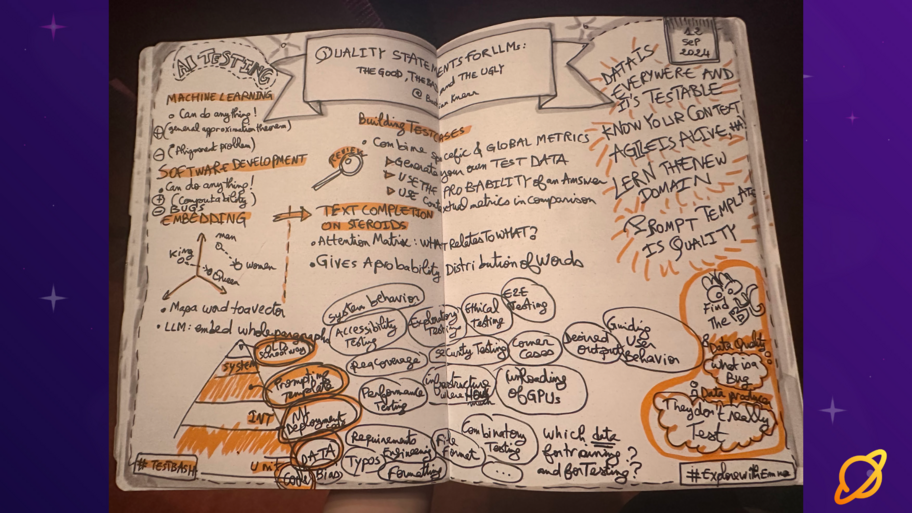 AI TESTING
QUALITY STATEMENTS FOR LLMs:
THE GOOD, THE BAD and THE UGLY
12
SEP
2024
MACHINE LEARNING
Can do anything!
(general approximation theorem)
(Alignment problem)
SOFTWARE DEVELOPMENT
Can do anything!
(Computability)
BUGS
EMBEDDING
King
man
women
Queen
Map a word to a vector
LLM: embed whole paragraphs
Building TESTCASES
REVIEW
Combine specific & GLOBAL METRICS
Generate your own TEST DATA
USE THE PROBABILITY of an Answer
USE Contextual metrics in comparison
TEXT COMPLETION
ON STEROIDS
Attention Matrix: WHAT RELATES TO WHAT?
Gives A probability Distribution of Words
DATA IS
EVERYWERE AND
IT'S TESTABLE
KNOW YOUR CONTEXT
AGILE IS ALIVE,
LERN THE NEW
DOMAIN
PROMPT TEMPLATE
IS QUALITY
OLD
School way
SYSTEM
Prompting
Template
INT
Deployment
DATA
UNIT
Code
Bias
System behavior
Accessibility
Testing
Exploratory
Testing
Ethical
Testing
E2E
Testing
Req Coverage
Security Testing
Corner
Cases
Desired
Output
Guiding
User
Behavior
Performance
Testing
Infrastructure
OF GPUs
Requirements
Engineering
Typos
Formatting
File
Format
Combinatory
Testing
...
Which data
for training?
and for testing?
Find
The
Data Quality
What is a
Bug
Data producer
They don't really
Test
#TESTBASH
#ExplorewithEmna